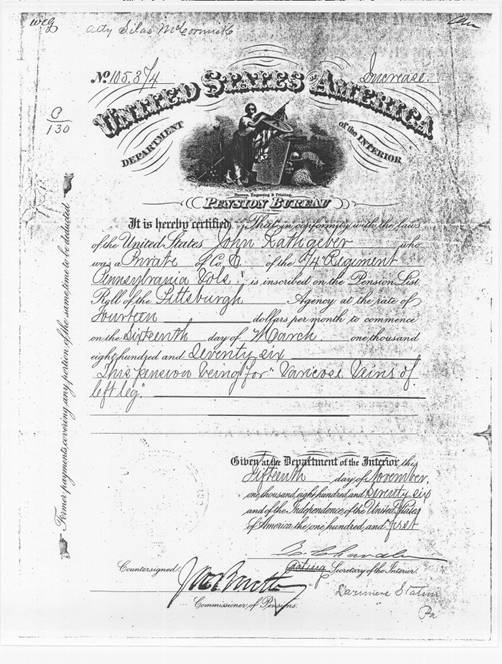 Atty Silas McCormick
No. 105,874
Increase.
C
130
UNITED STATES OF AMERICA
DEPARTMENT of the INTERIOR
PENSION BUREAU
It is hereby certified That in conformity with the laws
of the United States John Rathgeber who
was a Private Co. of the 74 Regiment
Pennsylvania Vols. is inscribed on the Pension List
Roll of the Pittsburgh Agency at the rate of
Fourteen dollars per month to commence
on the Sixteenth day of March one thousand
eight hundred and Seventy six
This pension being for "Varicose Vains of
left leg".
Former payments covering any portion of the same time to be deducted
Given at the Department of the Interior this
Fifteenth day of November,
one thousand eight hundred and Seventy six
and of the Independence of the United States
of America the one hundred and first
Secretary of the Interior.
Countersigned
Commissioner of Pensions.
Pa